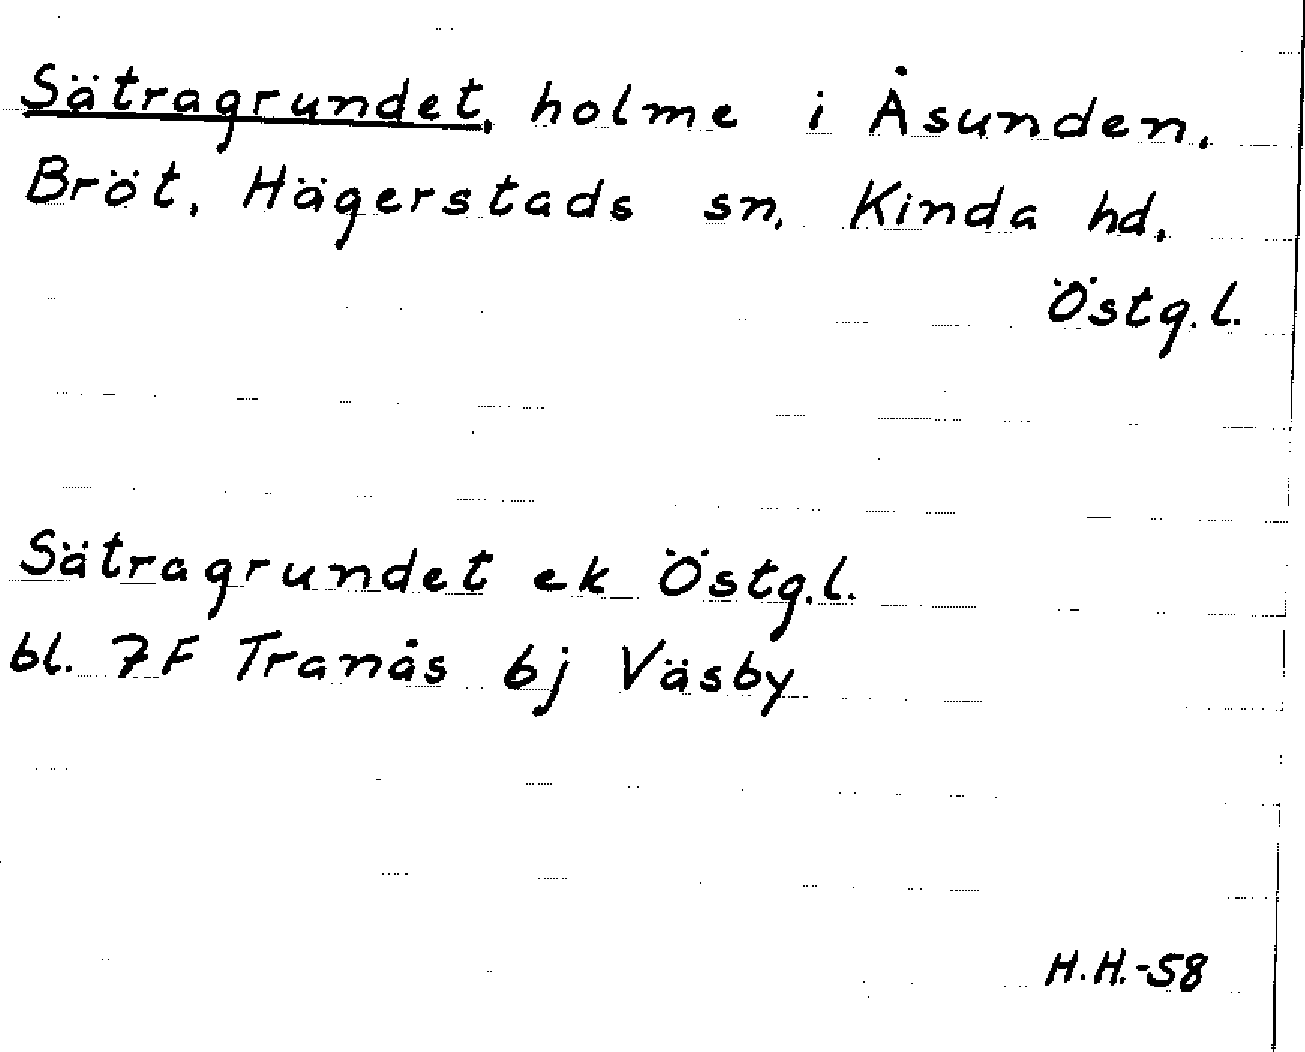 Sätragrundet, holme i Åsunden.
Bröt, Hägerstads sn, Kinda hd,
Östg.l.
Sätragrundet ek Östg.l.
bl. 7F Tranås bj Väsby
H.H.-58